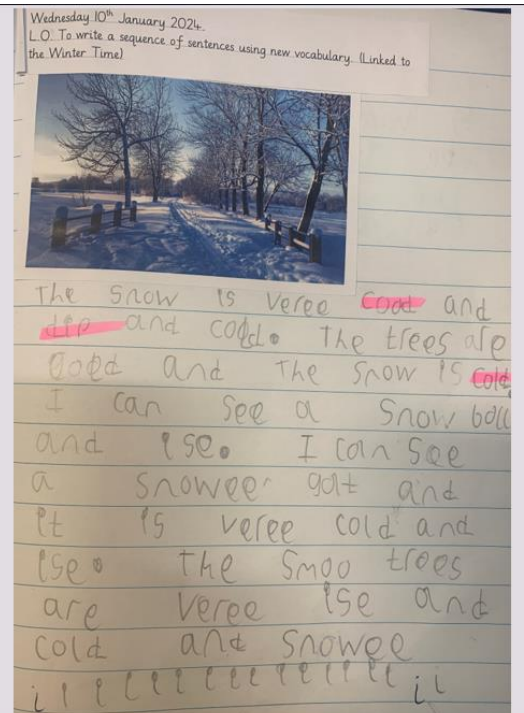 Wednesday 10th January 2024.
L.O. To write a sequence of sentences using new vocabulary. (Linked to
the Winter Time)
The snow is veree and
dip and cold. The trees are
and the snow is cold.
I can see a snow ball
and ise. I can see
a snowee gat and
it is veree cold and
ise. The smoo trees
are veree ise and
cold and snowee